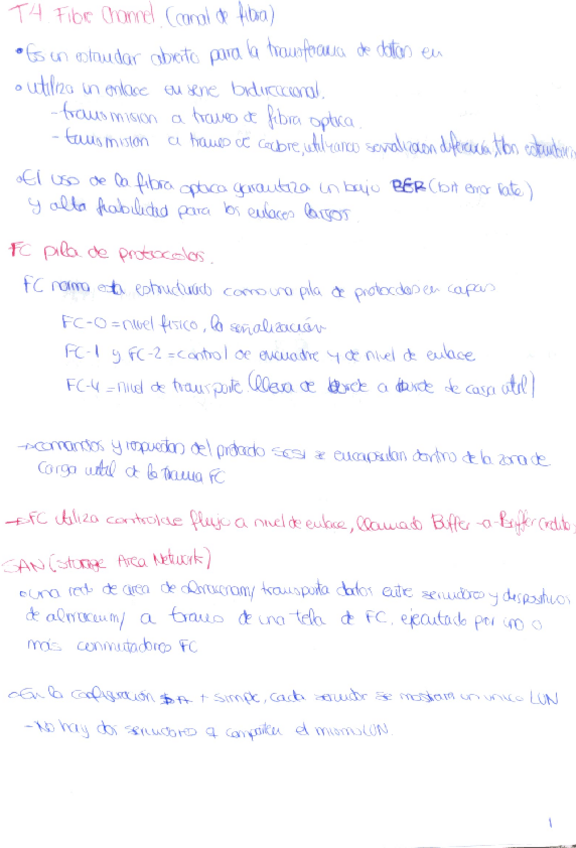 T4 Fibre Channel (canal de fibra)
• Es un estandar abierto para la transferencia de datos en
• utiliza un enlace en serie bidireccional.
- transmision a traves de fibra optica.
- transmision a traves de cobre, utilizando señalizacion diferencial
• El uso de la fibra optica garantiza un bajo BER (bit error rate)
y alta fiabilidad para los enlaces largos
FC pila de protocolos.
FC norma esta estructurado como una pila de protocolos en capas
FC-0 = nivel fisico, la señalización
FC-1 y FC-2 = control de encuadre y de nivel de enlace
FC-4 = nivel de transporte (lleva de borde a borde de casa
→ comandos y respuestas del protocolo SCSI se encapsulan dentro de la zona de
carga util de la trama FC
→ FC utiliza control de flujo a nivel de enlace, llamado Buffer-a-Buffer Credito
SAN (Storage Area Network)
• una red de area de almacenam/ transporta datos entre servidores y dispositivos
de almacenam/ a traves de una tela de FC, ejecutado por uno o
más conmutadores FC
• En la configuración SAN + simple, cada servidor se mostrara un unico LUN
- No hay dos servidores q comparten el mismo LUN.
1